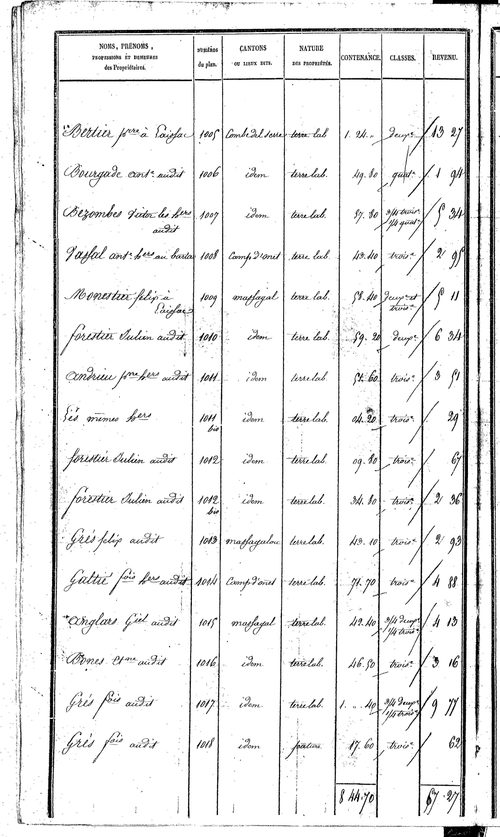 NOMS, PRÉNOMS, PROFESSIONS ET DEMEURES des Propriétaires. NUMÉROS du plan. CANTONS OU LIEUX DITS. NATURE DES PROPRIÉTÉS. CONTENANCE. CLASSES. REVENU.
Bertier pre à 1005 Combe del serre terre lab. 1. 24. „ deuxe 13 27
Bourgade ante audit 1006 idem terre lab. 49. 80 quate 1 94
Bezombes les hers audit 1007 idem terre lab. 57. 80 3/4 troise 1/4 quate 5 34
ante hers au 1008 Camp d'anet terre lab. 43. 40 troise 2 95
Monestier felip à 1009 massagal terre lab. 58. 40 deuxe et troise 5 11
forestier Julien audit 1010 idem terre lab. 59. 20 deuxe 6 34
andrieu pre hers audit 1011 idem terre lab. 51. 60 troise 3 51
Les mêmes hers 1011 bis idem terre lab. 04. 20 troise „ 29
forestier Julien audit 1012 idem terre lab. 09. 80 troise „ 67
forestier Julien audit 1012 bis idem terre lab. 34. 80 troise 2 36
Grés felip audit 1013 terre lab. 43. 10 troise 2 93
fois hers audit 1014 Camp d'anet terre lab. 71. 70 troise 4 88
anglars audit 1015 massagal terre lab. 42. 40 3/4 deuxe 1/4 troise 4 13
audit 1016 idem terre lab. 46. 50 troise 3 16
Grés fois audit 1017 idem terre lab. 1. „. 40 3/4 deuxe 1/4 troise 9 77
Grés fois audit 1018 idem 17. 60 troise „ 62
8 44. 70 67. 27